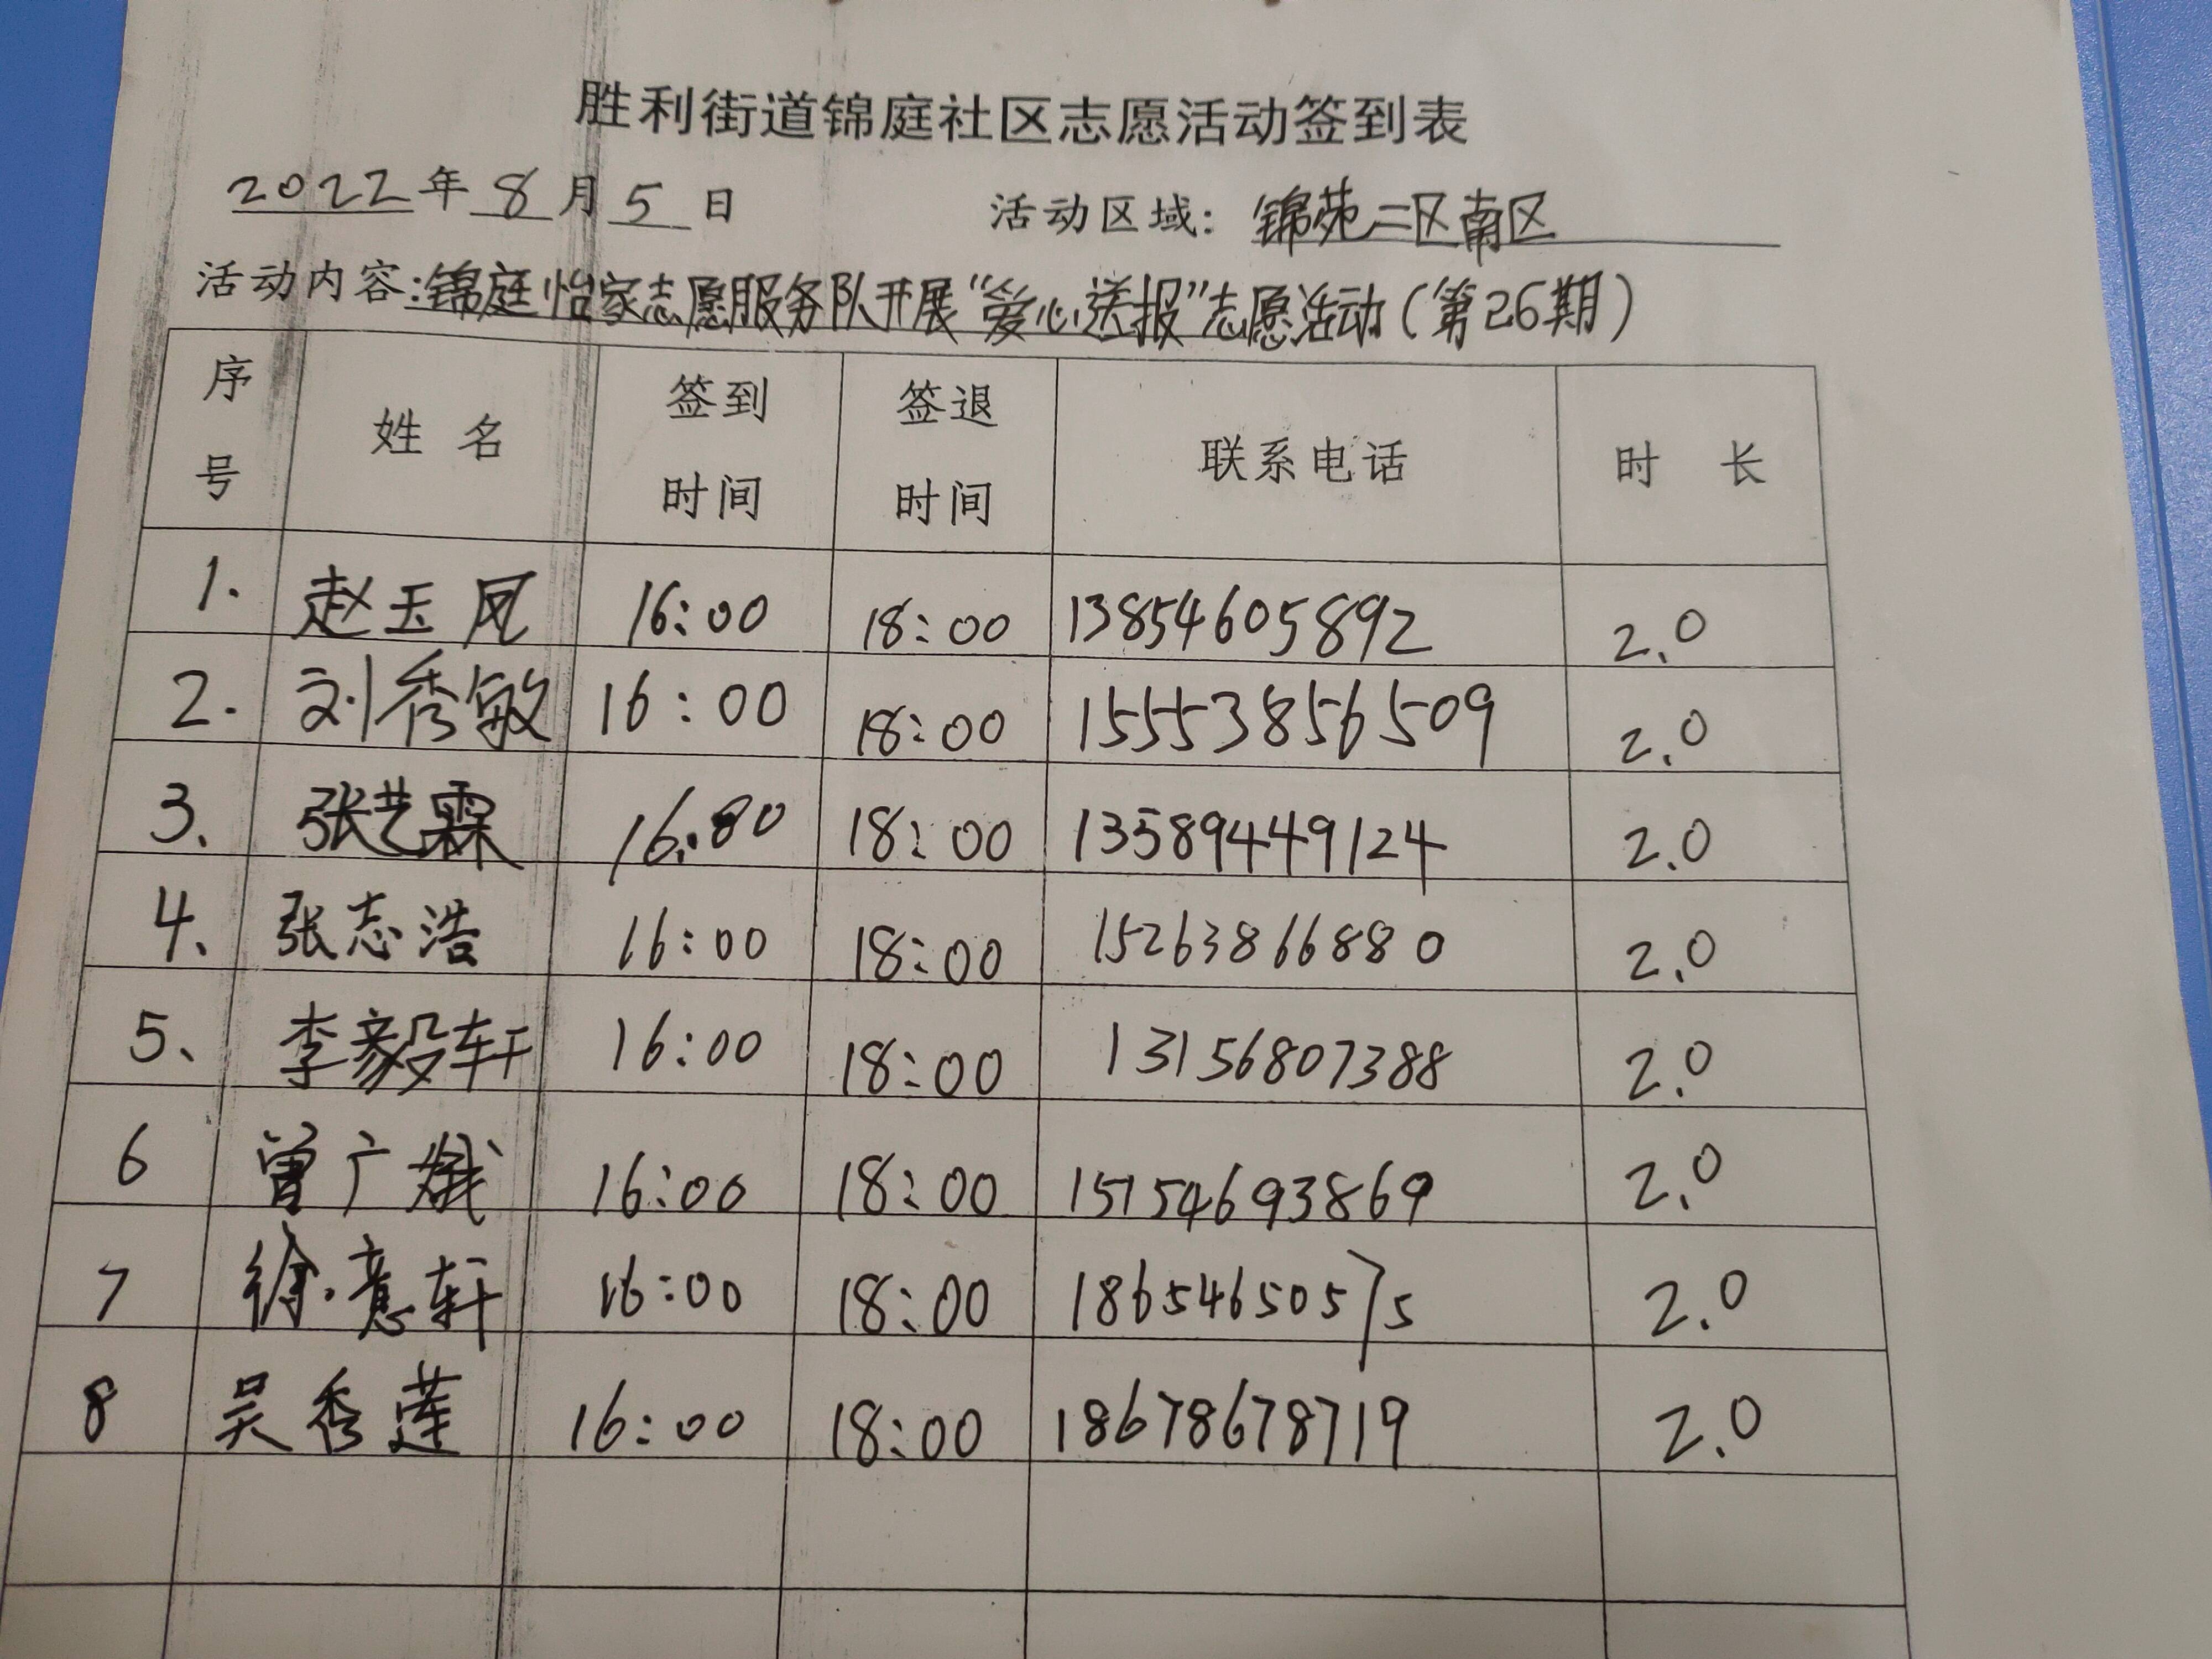 胜利街道锦庭社区志愿活动签到表
2022年8月5日 活动区域：锦苑二区南区
活动内容：锦庭怡家志愿服务队开展“爱心送报”志愿活动（第26期）
序号 姓名 签到时间 签退时间 联系电话 时长
1. 赵玉凤 16:00 18:00 13854605892 2.0
2. 刘秀敏 16:00 18:00 15553856509 2.0
3、 张艺霖 18:00 13589449124 2.0
4、 张志浩 16:00 18:00 15263866880 2.0
5、 李毅轩 16:00 18:00 13156807388 2.0
6 曾广 16:00 18:00 15154693869 2.0
7 徐意轩 16:00 18:00 18654650575 2.0
8 吴秀莲 16:00 18:00 18678678719 2.0